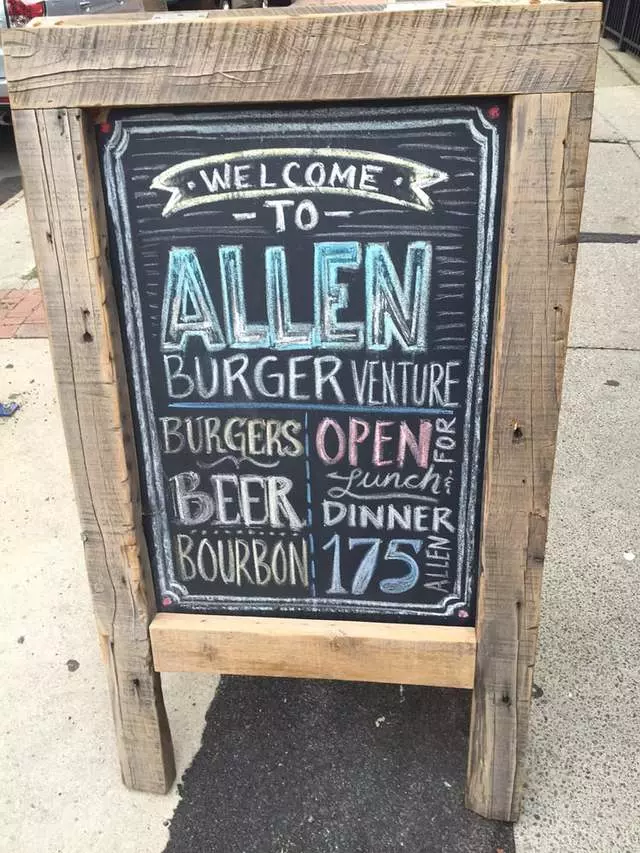 WELCOME
-TO-
ALLEN
BURGER VENTURE
BURGERS
BEER
BOURBON
OPEN FOR
Lunch &
DINNER
175 ALLEN